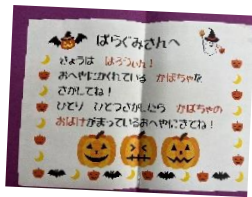 ばらぐみさんへ
きょうは はろうぃん！
おへやにかくれている かぼちゃを
さがしてね！
ひとり ひとつさがしたら かぼちゃの
おばけがまっているおへやにきてね！